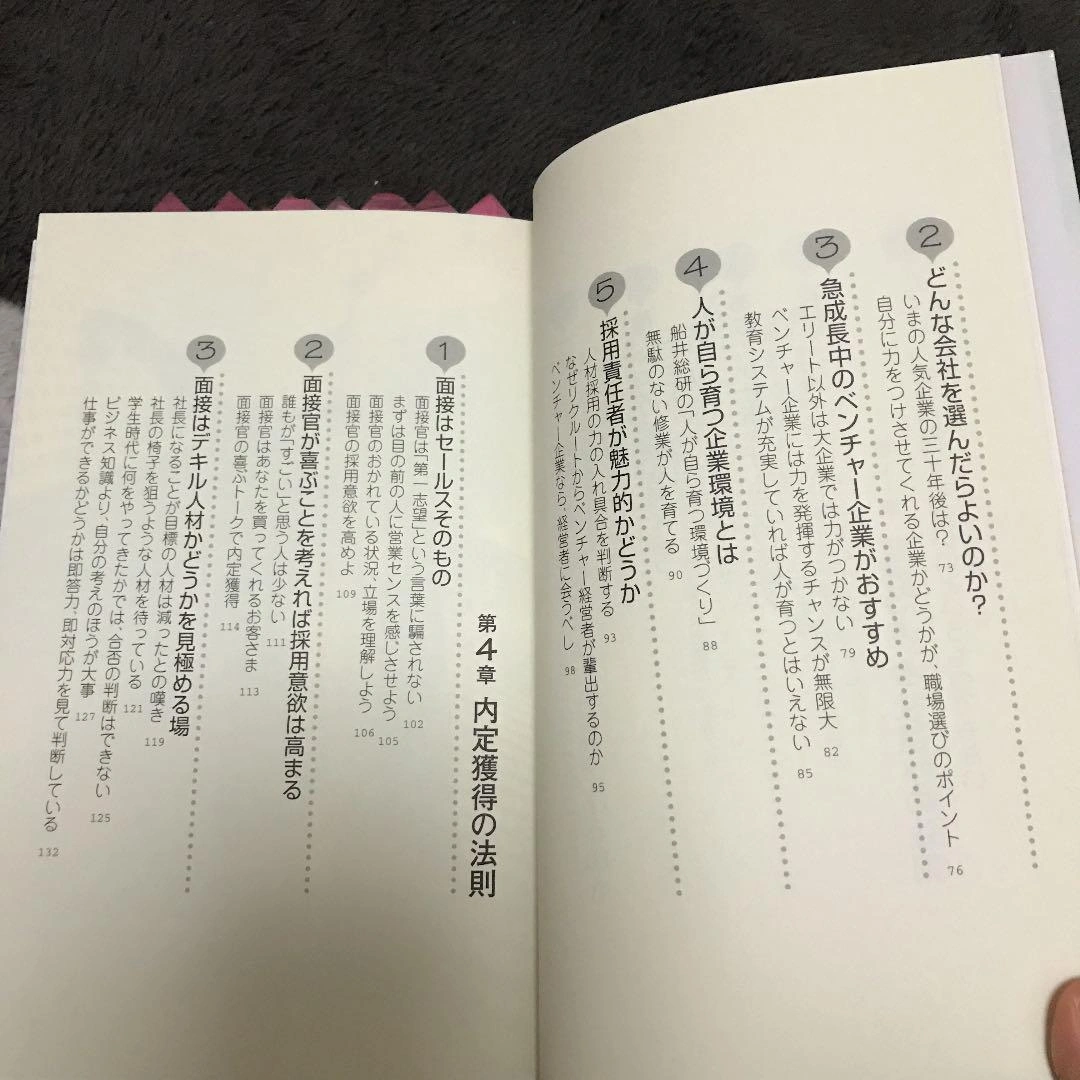 2
どんな会社を選んだらよいのか？
いまの人気企業の三十年後は？ 73
自分に力をつけさせてくれる企業かどうかが、職場選びのポイント 76
3
急成長中のベンチャー企業がおすすめ
エリート以外は大企業では力がつかない 79
ベンチャー企業には力を発揮するチャンスが無限大 82
教育システムが充実していれば人が育つとはいえない 85
4
人が自ら育つ企業環境とは
船井総研の「人が自ら育つ環境づくり」 88
無駄のない修業が人を育てる 90
5
採用責任者が魅力的かどうか
人材採用の力の入れ具合を判断する 93
なぜリクルートからベンチャー経営者が輩出するのか 95
ベンチャー企業なら、経営者に会うべし 98
第4章 内定獲得の法則
1
面接はセールスそのもの
面接官は「第一志望」という言葉に騙されない 102
まずは目の前の人に営業センスを感じさせよう 105
面接官のおかれている状況、立場を理解しよう 106
面接官の採用意欲を高めよ 109
2
面接官が喜ぶことを考えれば採用意欲は高まる
誰もが「すごい」と思う人は少ない 111
面接官はあなたを買ってくれるお客さま 113
面接官の喜ぶトークで内定獲得 114
3
面接はデキル人材かどうかを見極める場
社長になることが目標の人材は減ったとの嘆き 119
社長の椅子を狙うような人材を待っている 121
学生時代に何をやってきたかでは、合否の判断はできない 125
ビジネス知識より、自分の考えのほうが大事 127
仕事ができるかどうかは即答力、即対応力を見て判断している 132